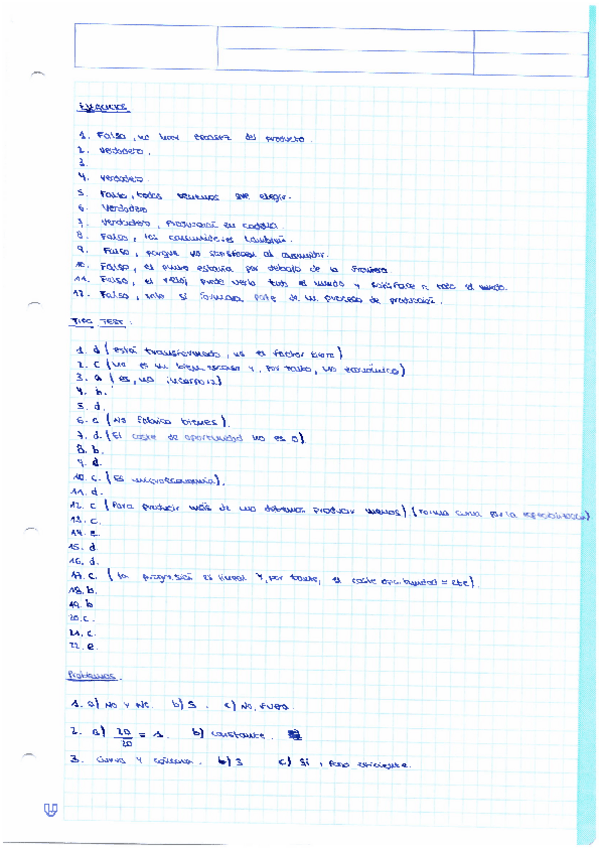 Ejercicios
1. Falso, no hay escasez del producto.
2. Verdadero.
3.
4. Verdadero.
5. Falso, todos tenemos que elegir.
6. Verdadero
7. Verdadero, producción en cadena
8. Falso, los consumidores también.
9. Falso, porque no satisface al consumidor.
10. Falso, el punto estaría por debajo de la frontera
11. Falso, el reloj puede verlo todo el mundo y satisface a todo el mundo.
12. Falso, solo si forma parte de un proceso de producción.
TIPO TEST:
1. d (está transformado, no es factor tierra)
2. c (no es un bien escaso y, por tanto, no económico)
3. a (es, no incorpora)
4. b.
5. d.
6. c (No fabrica bienes).
7. d. (El coste de oportunidad no es 0)
8. b.
9. d.
10. c. (Es microeconomía).
11. d.
12. c (Para producir más de uno debemos producir menos) (forma curva por la especialización)
13. c.
14. e.
15. d
16. d.
17. c. (la progresión es lineal y, por tanto, el coste oportunidad = cte).
18. b.
19. b
20. c.
21. c.
22. e.
Problemas.
1. a) No y No. b) S. c) No, fuera.
2. a) 20/20 = 1. b) constante.
3. Curva y cóncava. b) 3 c) Sí, pero eficiente.